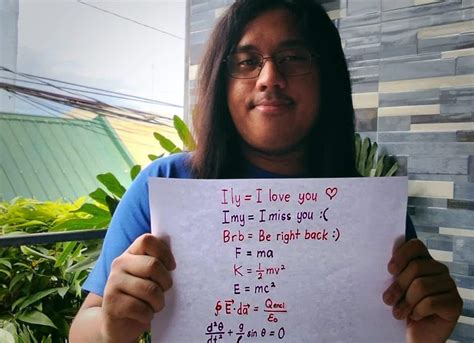 Ily = I love you ♡
Imy = I miss you :(
Brb = Be right back :)
F = ma
K = ½ mv²
E = mc²
∮ E⃗ · da⃗ = Qencl / ε₀
d²θ/dt² + g/ℓ sin θ = 0